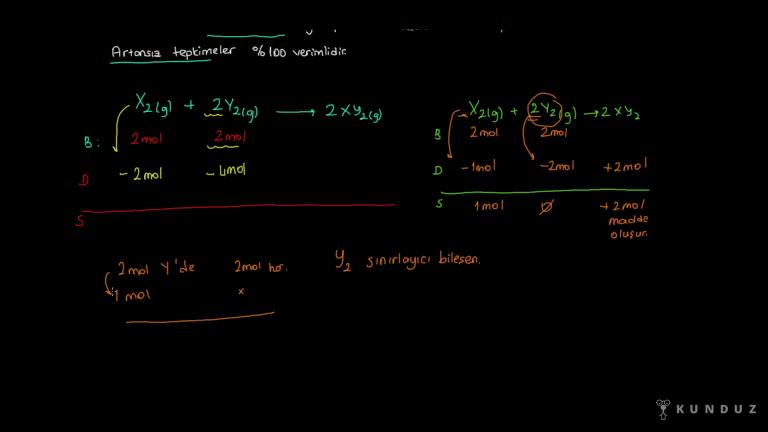 Artansız tepkimeler %100 verimlidir.
X₂(g) + 2Y₂(g) ⟶ 2XY₂(g)
B: 2mol 2mol
D -2mol -4mol
S
X₂(g) + 2Y₂(g) → 2XY₂
B 2mol 2mol
D -1mol -2mol +2mol
S 1mol ∅ +2mol
madde
oluşur.
2mol Y'de 2mol har.
1 mol x
Y₂ sınırlayıcı bileşen.
KUNDUZ